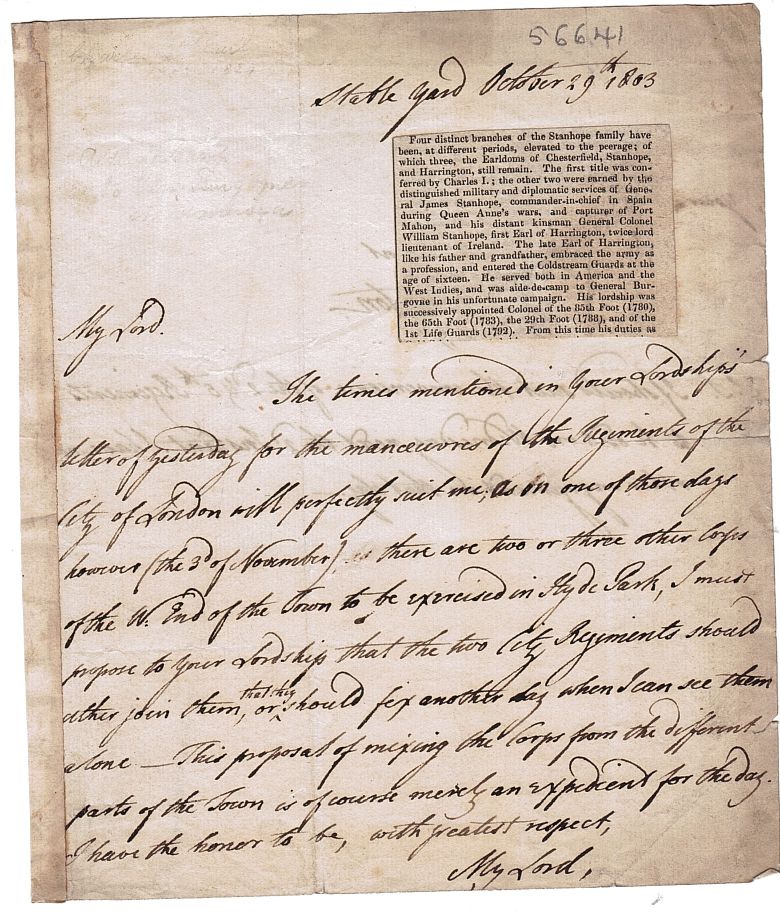 56641
Stable Yard October 29th 1803
Four distinct branches of the Stanhope family have
been, at different periods, elevated to the peerage; of
which three, the Earldoms of Chesterfield, Stanhope,
and Harrington, still remain. The first title was con-
ferred by Charles I.; the other two were earned by the
distinguished military and diplomatic services of Gene-
ral James Stanhope, commander-in-chief in Spain
during Queen Anne's wars, and capturer of Port
Mahon, and his distant kinsman General Colonel
William Stanhope, first Earl of Harrington, twice lord
lieutenant of Ireland. The late Earl of Harrington,
like his father and grandfather, embraced the army as
a profession, and entered the Coldstream Guards at the
age of sixteen. He served both in America and the
West Indies, and was aide-de-camp to General Bur-
goyne in his unfortunate campaign. His lordship was
successively appointed Colonel of the 85th Foot (1780),
the 65th Foot (1783), the 29th Foot (1788), and of the
1st Life Guards (1792). From this time his duties as
My Lord.
The times mentioned in Your Lordship's
letter of Yesterday for the manœuvres of the Regiments of the
City of London will perfectly suit me; as on one of those days
however (the 3d of November) there are two or three other Corps
of the W. End of the Town to be exercised in Hyde Park, I must
propose to Your Lordship that the two City Regiments should
either join them, or that they should fix another day when I can see them
alone — This proposal of mixing the Corps from the different
parts of the Town is of course merely an expedient for the day.
I have the honor to be, with greatest respect,
My Lord,